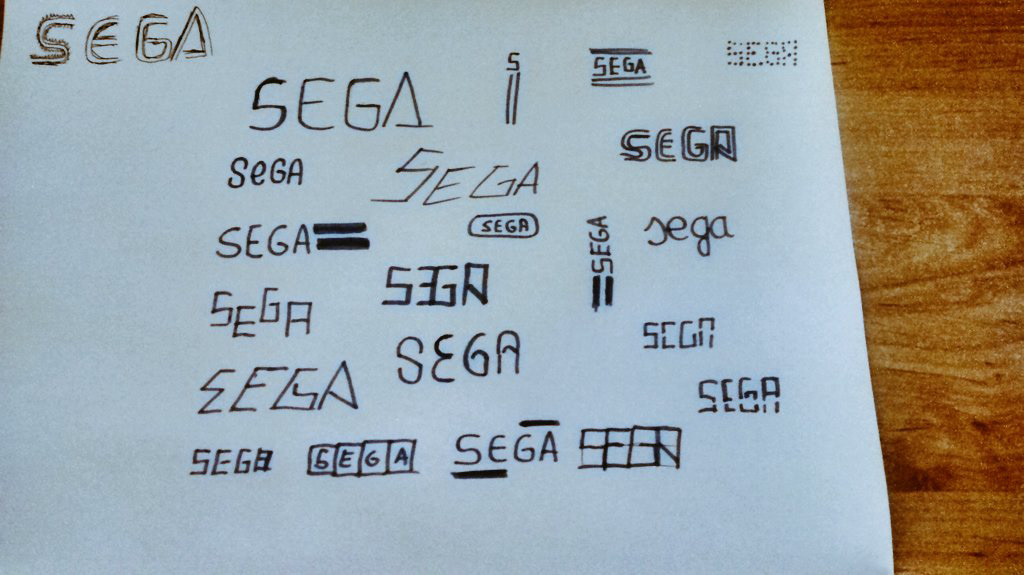 SEGA
SEGA
S
SEGA
SEGA
SEGA
SeGA
SEGA
SEGA
SEGA
SEGA
sega
SEGA
SEGA
SEGA
SEGA
SEGA
SEGA
SEGA
SEGA
SEGA
SEGA
SEGA